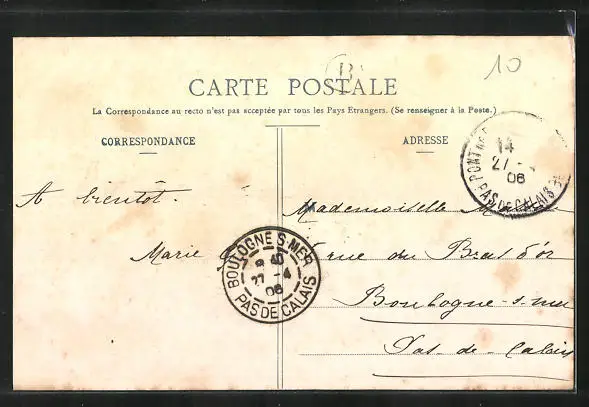 B
10
CARTE POSTALE
La Correspondance au recto n'est pas acceptée par tous les Pays Etrangers. (Se renseigner à la Poste.)
CORRESPONDANCE
ADRESSE
14
27
06
PAS DE CALAIS
A bientôt.
Marie
BOULOGNE-S-MER
27 - 4
06
PAS DE CALAIS
Mademoiselle
rue du Bras d'or
Boulogne-s-mer
Pas-de-Calais